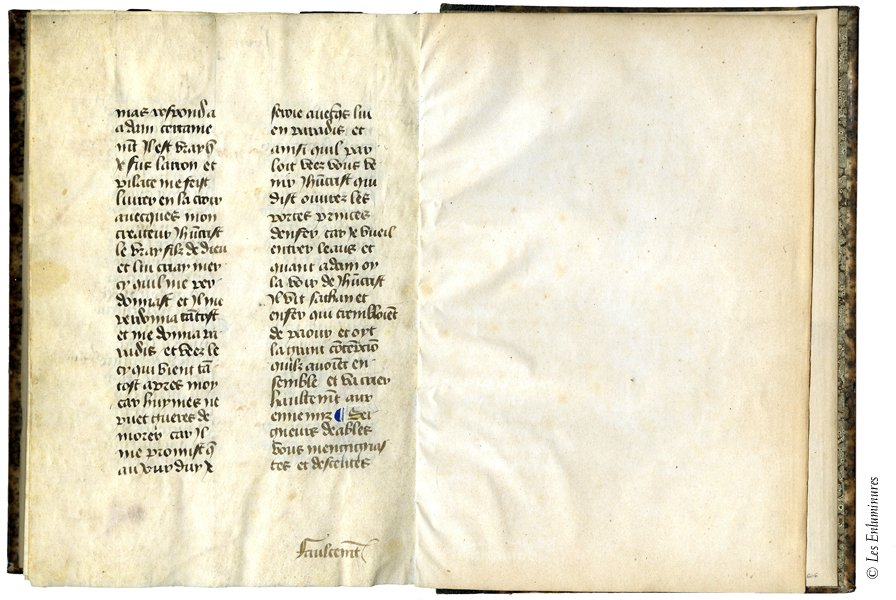 mas respond a
adam certaine
mt Il est vray q̄
Je fus larron et
pilate me feist
liurer en la croix
auecques mon
createur Jhūcrist
le vray filz de dieu
et lui criay mer
cy quil me par
donnast et Il me
pardonna tātost
et me donna pa
radis et veez le
cy qui vient tā
tost apres moy
car huymes ne
puet gueres de
morer car Il
me promist q̄
au Jour duy Je
seroie auecq̄s lui
en paradis et
ainsi quil par
loit veez vous ve
nir Jhūcrist qui
dist ouurez les
portes princes
denfer car Je vueil
entrer leans et
quant adam oy
la voix de Jhūcrist
Il vit sathan et
enfer qui trembloiēt
de paour et oyt
la grant cōtencō
quilz auoiēt en
semble et va crier
haultemt aux
ennemiz Sei
gneurs deables
vous
tes et
faulcemt
© Les Enluminures